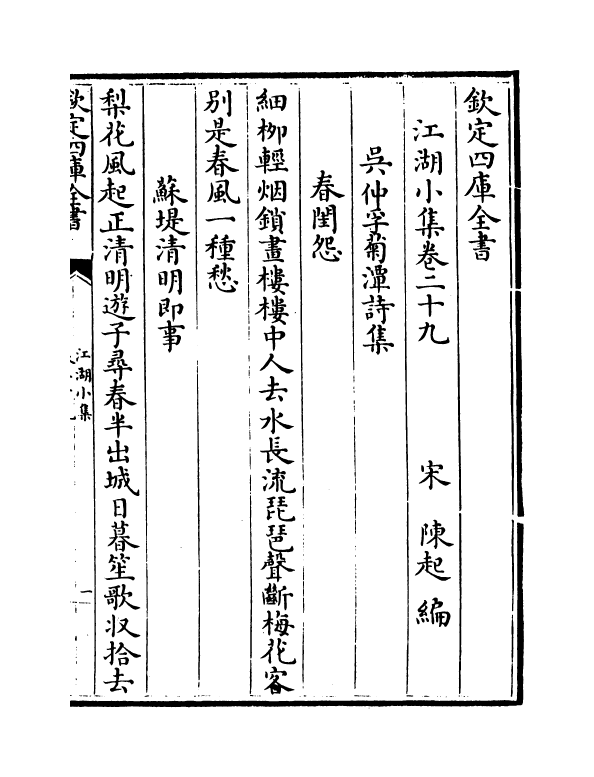 欽定四庫全書
江湖小集卷二十九　　宋　陳起　編
吳仲孚菊潭詩集
春閨怨
細柳輕烟鎖畫樓樓中人去水長流琵琶聲斷梅花客
別是春風一種愁
蘇堤清明即事
梨花風起正清明遊子尋春半出城日暮笙歌収拾去
欽定四庫全書
江湖小集
一